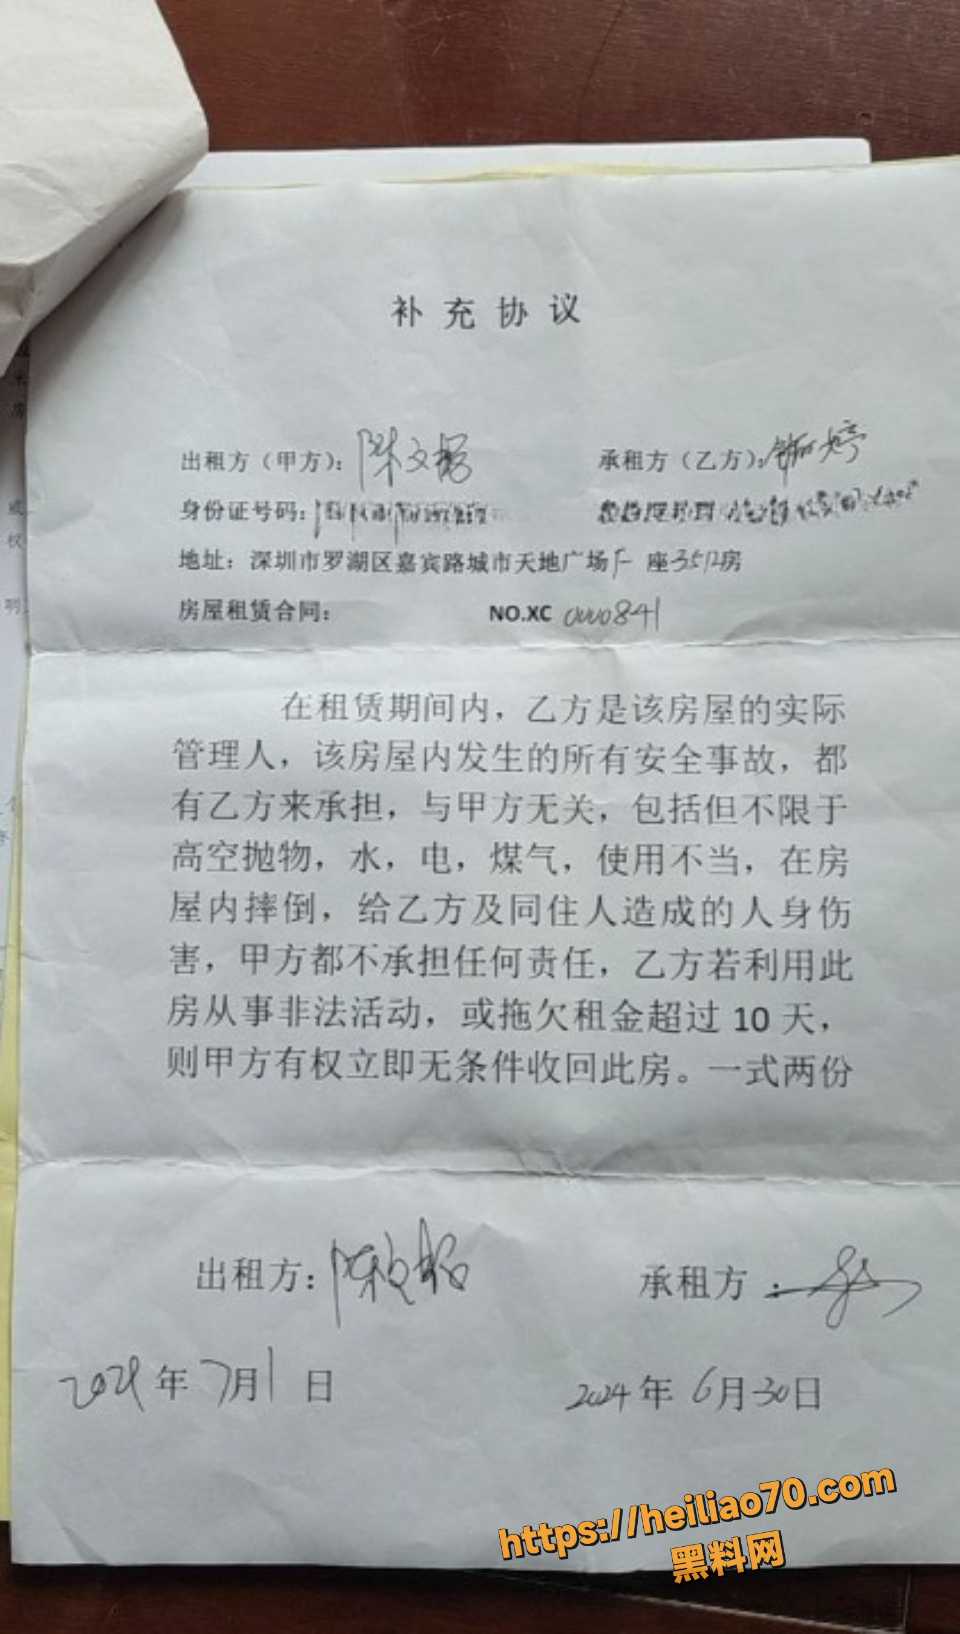 补充协议
出租方（甲方）：陈文 承租方（乙方）：婷
身份证号码：
地址：深圳市罗湖区嘉宾路城市天地广场 座3512房
房屋租赁合同： NO.XC 0000841
在租赁期间内，乙方是该房屋的实际
管理人，该房屋内发生的所有安全事故，都
有乙方来承担，与甲方无关，包括但不限于
高空抛物，水，电，煤气，使用不当，在房
屋内摔倒，给乙方及同住人造成的人身伤
害，甲方都不承担任何责任，乙方若利用此
房从事非法活动，或拖欠租金超过 10 天，
则甲方有权立即无条件收回此房。一式两份
出租方：陈文 承租方：
2024年7月1日 2024年6月30日
https://heiliao70.com
黑料网